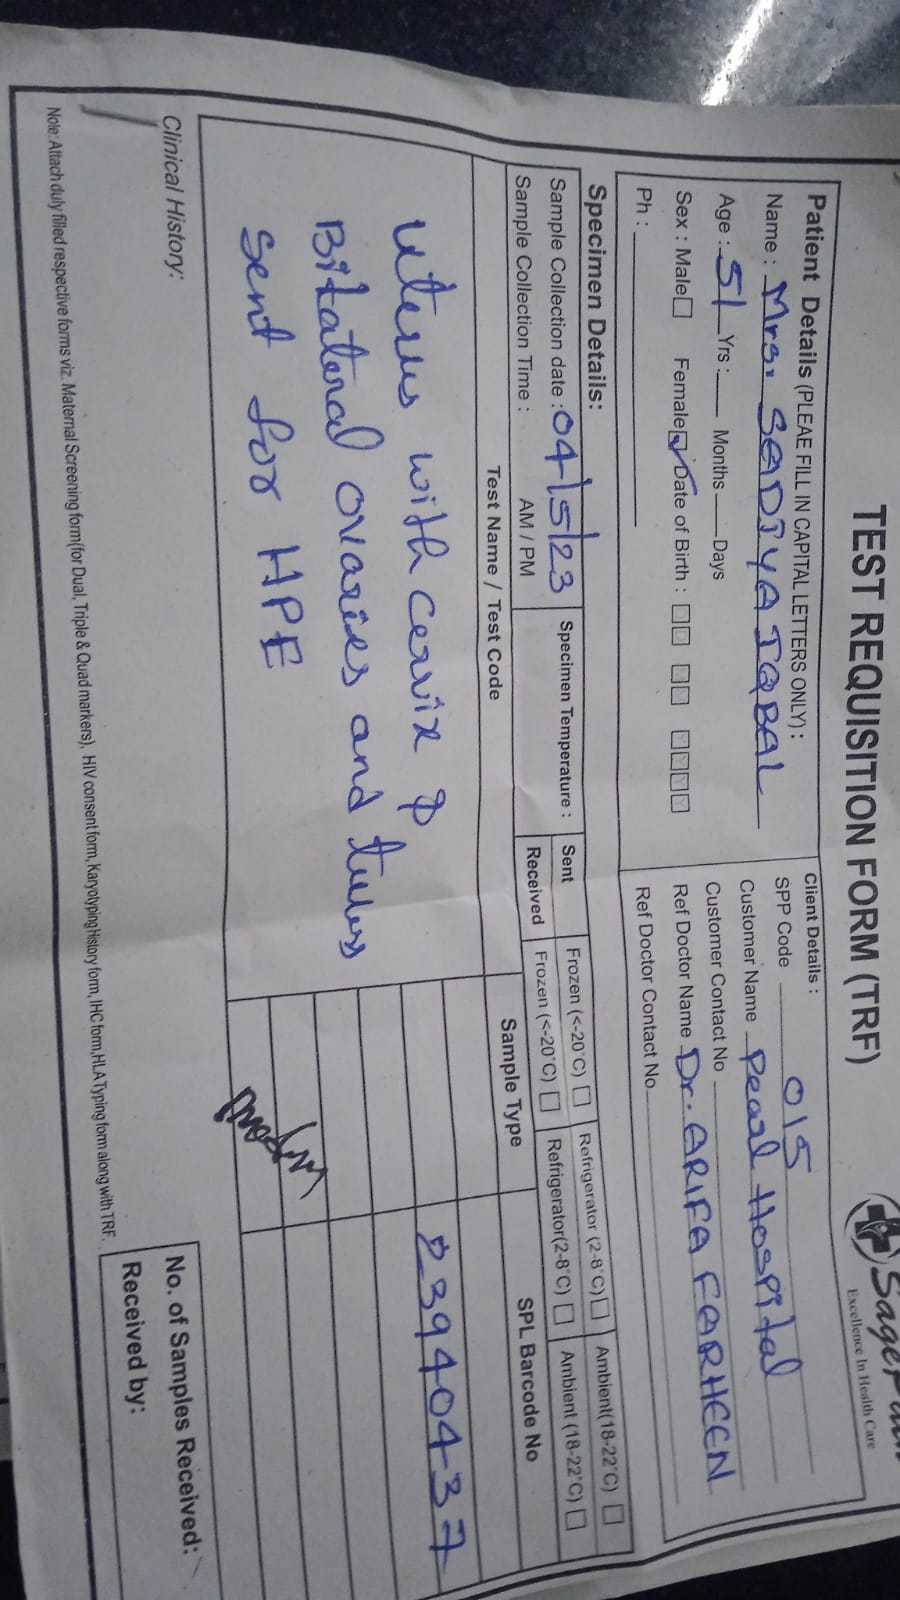 TEST REQUISITION FORM (TRF)
Excellence In Health Care
Patient Details (PLEAE FILL IN CAPITAL LETTERS ONLY) :
Name : Mrs. SADIYA IQBAL
Age : 51 Yrs : Months Days
Sex : Male Female Date of Birth :
Ph :
Client Details :
SPP Code 015
Customer Name Pearl Hospital
Customer Contact No
Ref Doctor Name Dr. ARIFA FARHEEN
Ref Doctor Contact No
Specimen Details:
Sample Collection date : 04/5/23
Sample Collection Time : AM / PM
Specimen Temperature :
Sent Frozen (<-20°C) Refrigerator (2-8°C) Ambient(18-22°C)
Received Frozen (<-20°C) Refrigerator(2-8°C) Ambient (18-22°C)
Test Name / Test Code Sample Type SPL Barcode No
Uterus with cervix 23940437
Bilateral ovaries and tubes
sent for HPE
Clinical History:
No. of Samples Received:
Received by:
Note: Attach duly filled respective forms viz. Maternal Screening form(for Dual, Triple & Quad markers), HIV consent form, Karyotyping History form, IHC form,HLA Typing form along with TRF.